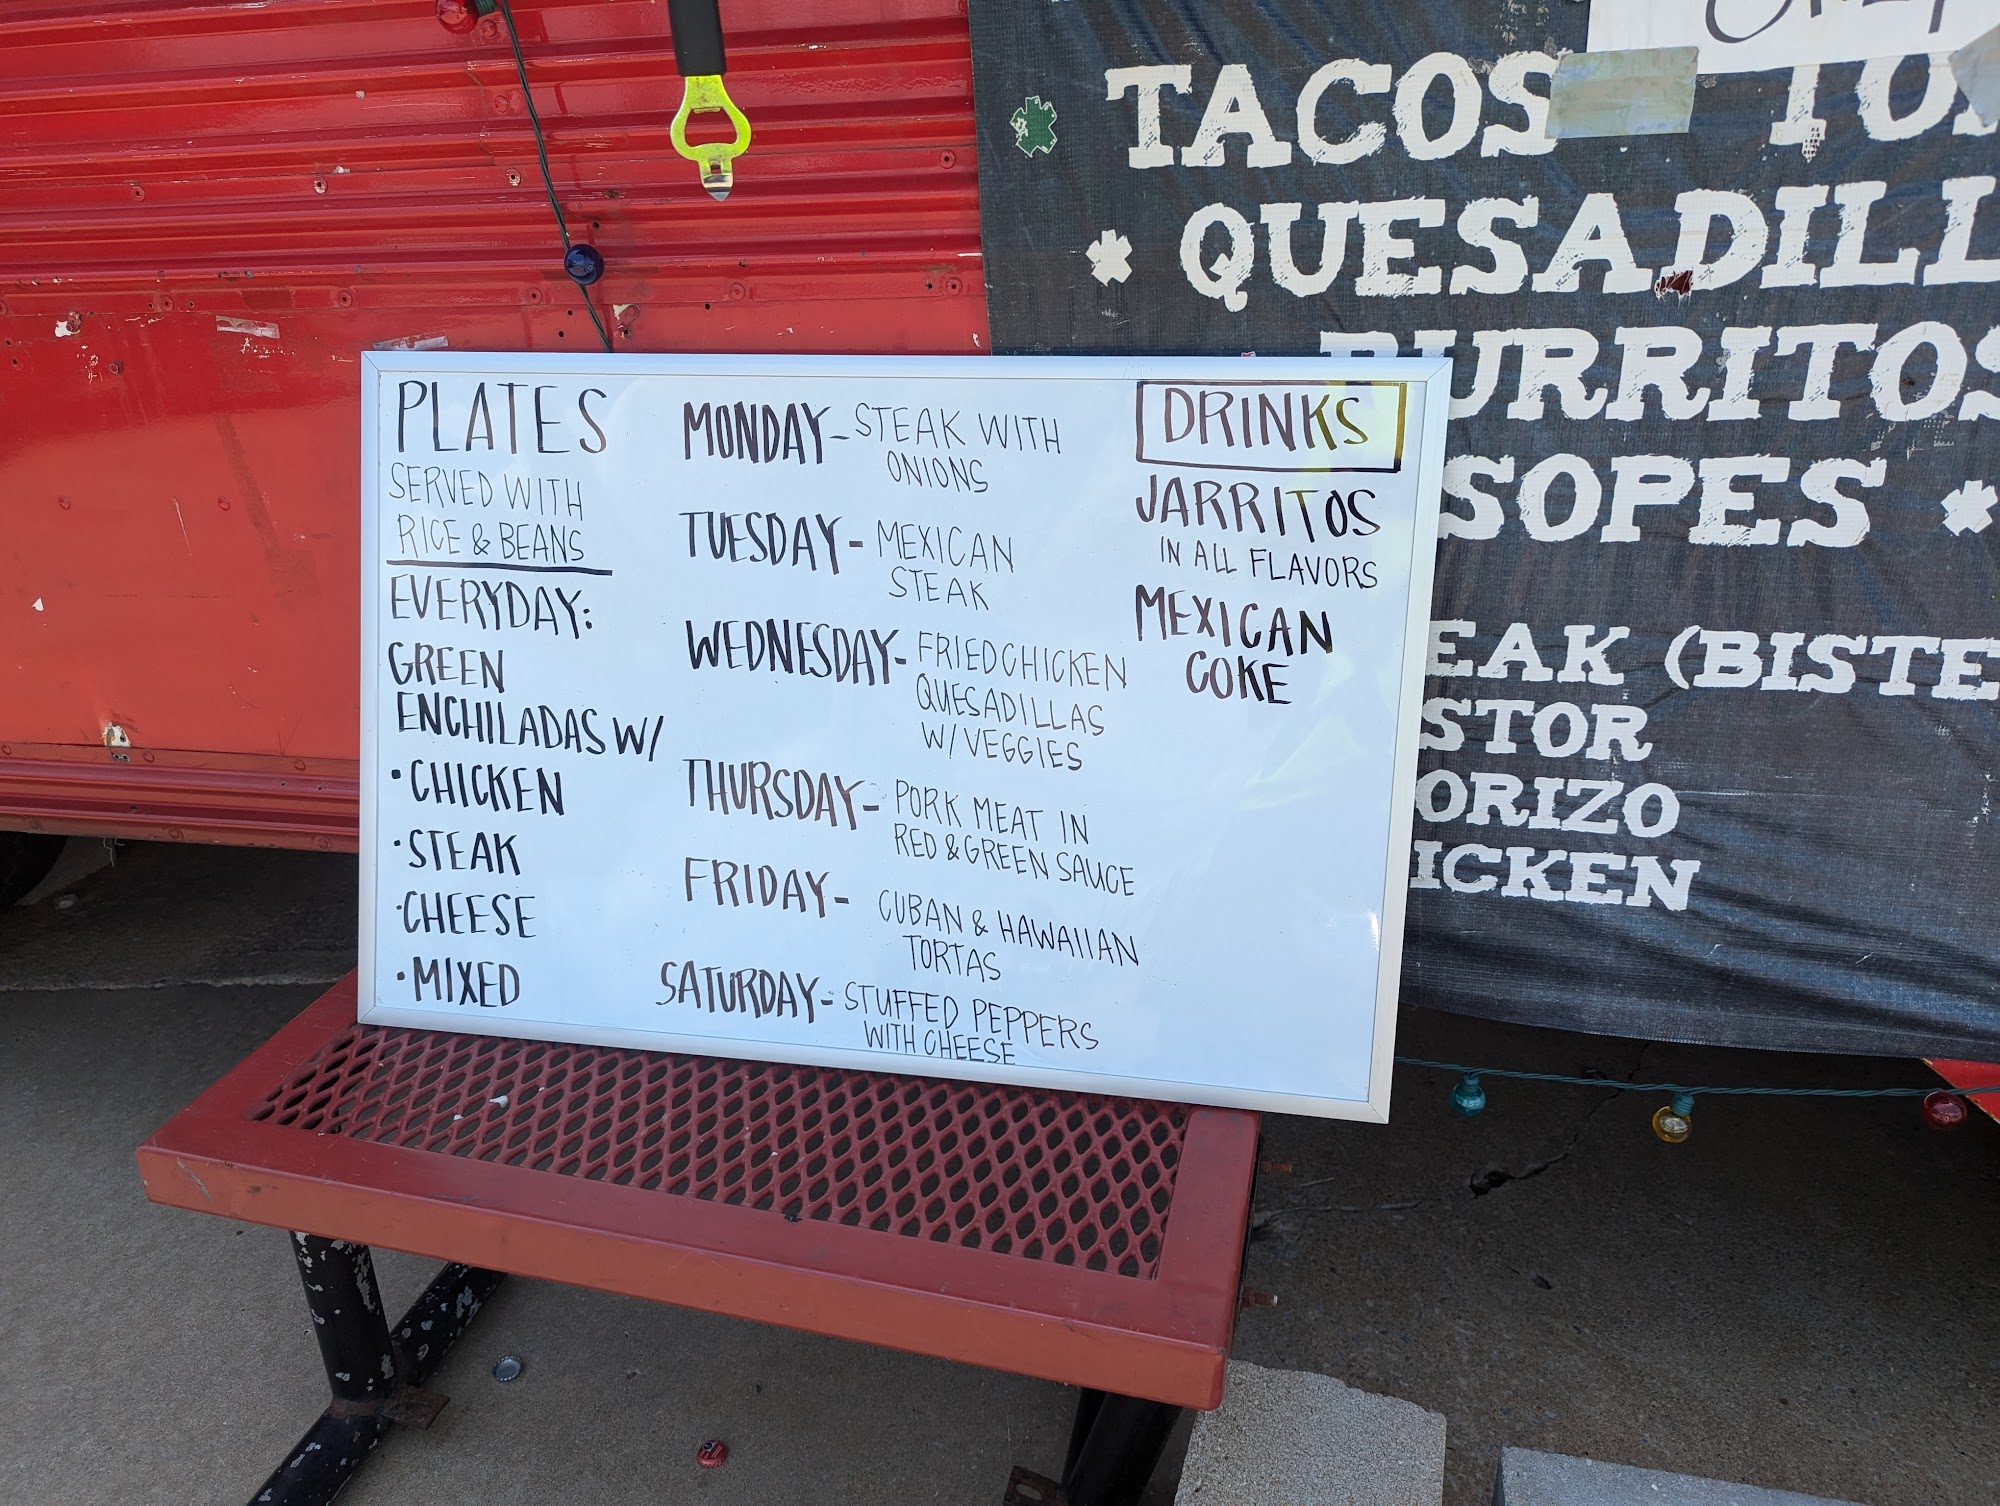 PLATES
SERVED WITH
RICE & BEANS
EVERYDAY:
GREEN
ENCHILADAS W/
• CHICKEN
• STEAK
• CHEESE
• MIXED
MONDAY - STEAK WITH
ONIONS
TUESDAY - MEXICAN
STEAK
WEDNESDAY - FRIED CHICKEN
QUESADILLAS
W/ VEGGIES
THURSDAY - PORK MEAT IN
RED & GREEN SAUCE
FRIDAY - CUBAN & HAWAIIAN
TORTAS
SATURDAY - STUFFED PEPPERS
WITH CHEESE
DRINKS
JARRITOS
IN ALL FLAVORS
MEXICAN
COKE
TACOS TO
QUESADILL
BURRITOS
SOPES
EAK (BISTE
STOR
ORIZO
ICKEN